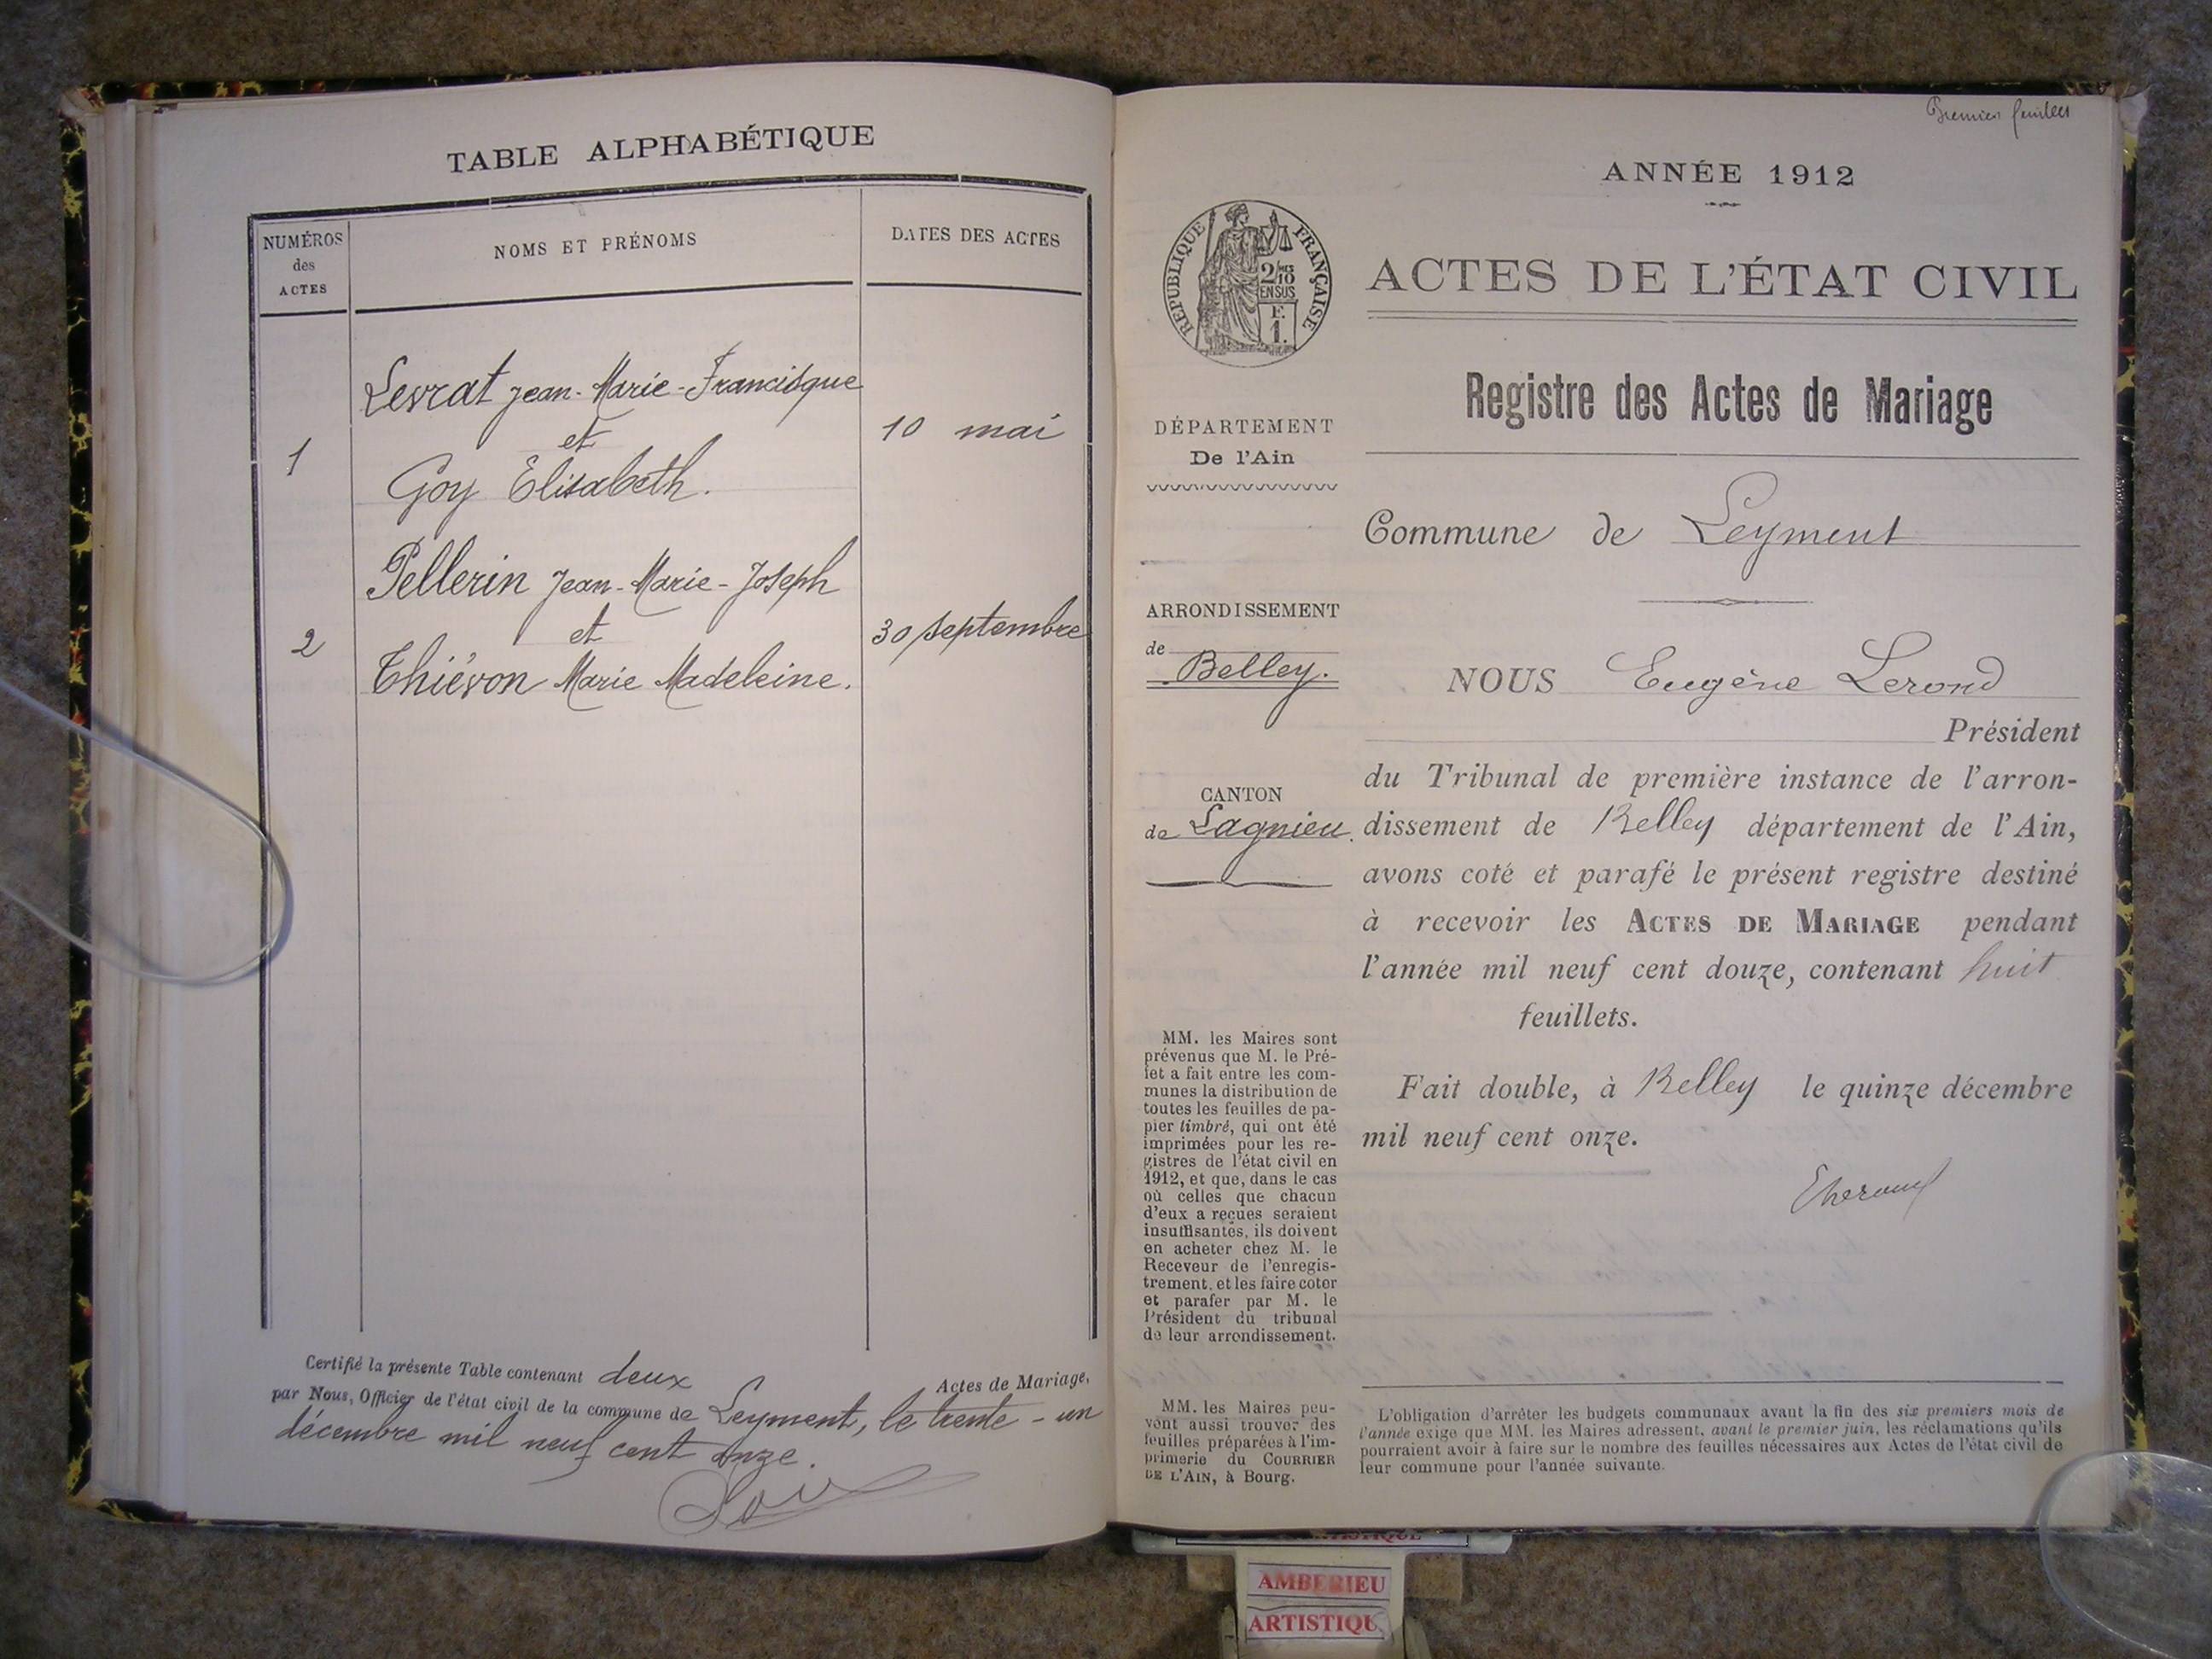 TABLE ALPHABÉTIQUE
NUMÉROS
des
ACTES
NOMS ET PRÉNOMS
DATES DES ACTES
Levrat Jean-Marie-Francisque
et
1
10 mai
Goy Elisabeth.
Pellerin Jean-Marie-Joseph
et
2
30 septembre
Thiévon Marie Madeleine.
Certifié la présente Table contenant deux Actes de Mariage,
par Nous, Officier de l'état civil de la commune de Leyment, le trente-un
décembre mil neuf cent onze.
Premier feuillet
ANNÉE 1912
RÉPUBLIQUE FRANÇAISE
2/10 MES
EN SUS
F.
1.
ACTES DE L'ÉTAT CIVIL
Registre des Actes de Mariage
DÉPARTEMENT
De l'Ain
Commune de Leyment
ARRONDISSEMENT
de Belley.
NOUS Eugène Lerond
Président
CANTON
de Lagnieu.
du Tribunal de première instance de l'arron-
dissement de Belley département de l'Ain,
avons coté et parafé le présent registre destiné
à recevoir les ACTES DE MARIAGE pendant
l'année mil neuf cent douze, contenant huit
feuillets.
Fait double, à Belley le quinze décembre
mil neuf cent onze.
MM. les Maires sont
prévenus que M. le Pré-
fet a fait entre les com-
munes la distribution de
toutes les feuilles de pa-
pier timbré, qui ont été
imprimées pour les re-
gistres de l'état civil en
1912, et que, dans le cas
où celles que chacun
d'eux a reçues seraient
insuffisantes, ils doivent
en acheter chez M. le
Receveur de l'enregis-
trement, et les faire coter
et parafer par M. le
Président du tribunal
de leur arrondissement.
MM. les Maires peu-
vent aussi trouver des
feuilles préparées à l'im-
primerie du COURRIER
DE L'AIN, à Bourg.
L'obligation d'arrêter les budgets communaux avant la fin des six premiers mois de
l'année exige que MM. les Maires adressent, avant le premier juin, les réclamations qu'ils
pourraient avoir à faire sur le nombre des feuilles nécessaires aux Actes de l'état civil de
leur commune pour l'année suivante.
AMBERIEU
ARTISTIQU